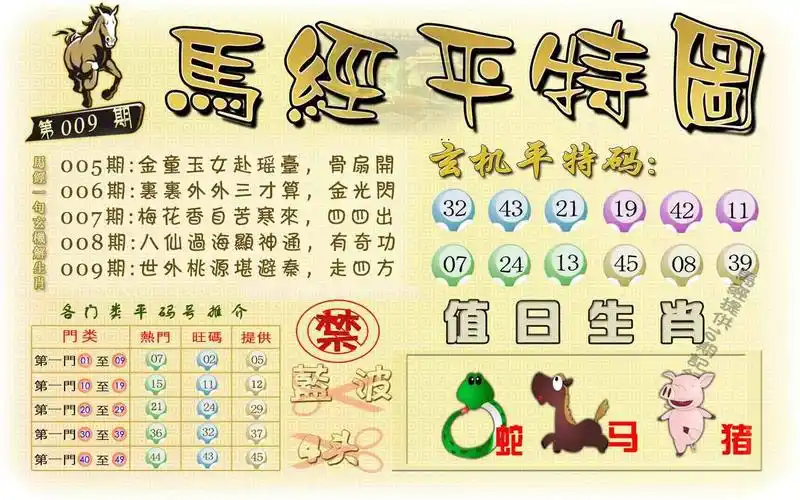 馬經平特圖
第009期
馬經一句玄機解生肖
005期:金童玉女赴瑶臺，骨扇開
006期:裏裏外外三才算，金光閃
007期:梅花香自苦寒來，四四出
008期:八仙過海顯神通，有奇功
009期:世外桃源堪避秦，走四方
玄机平特码:
32 43 21 19 42 11
07 24 13 45 08 39
各门类平码号推介
門类 熱門 旺碼 提供
第一門 01 至 09 07 02 05
第一門 10 至 19 15 11 12
第一門 20 至 29 21 24 29
第一門 30 至 39 36 32 37
第一門 40 至 49 44 43 45
禁
藍波
4头
值日生肖
蛇 马 猪